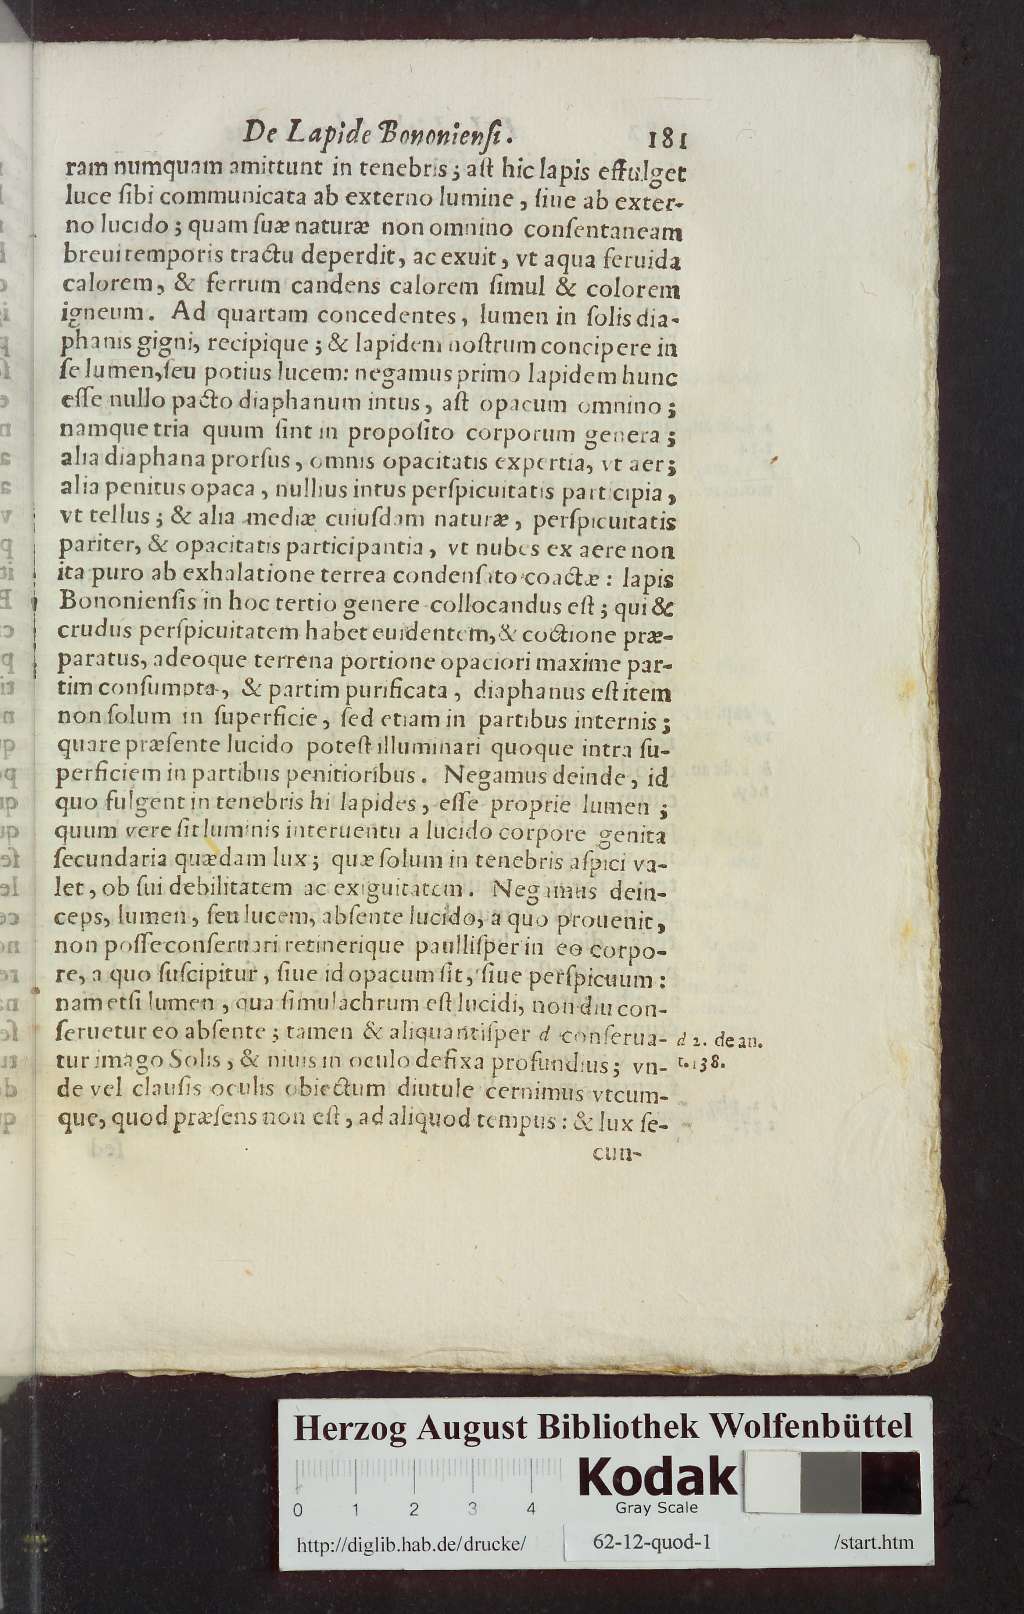 De Lapide Bononiensi. 181
ram numquam amittunt in tenebris; aſt hic lapis effulget
luce ſibi communicata ab externo lumine, ſiue ab exter-
no lucido; quam ſuæ naturæ non omnino conſentaneam
breui temporis tractu deperdit, ac exuit, vt aqua feruida
calorem, & ferrum candens calorem ſimul & colorem
igneum. Ad quartam concedentes, lumen in ſolis dia-
phanis gigni, recipique; & lapidem noſtrum concipere in
ſe lumen, ſeu potius lucem: negamus primo lapidem hunc
eſſe nullo pacto diaphanum intus, aſt opacum omnino;
namque tria quum ſint in propoſito corporum genera;
alia diaphana prorſus, omnis opacitatis expertia, vt aer;
alia penitus opaca, nullius intus perſpicuitatis participia,
vt tellus; & alia mediæ cuiuſdam naturæ, perſpicuitatis
pariter, & opacitatis participantia, vt nubes ex aere non
ita puro ab exhalatione terrea condenſato coactæ: lapis
Bononienſis in hoc tertio genere collocandus eſt; qui &
crudus perſpicuitatem habet euidentem, & coctione præ-
paratus, adeoque terrena portione opaciori maxime par-
tim conſumpta, & partim purificata, diaphanus eſt item
non ſolum in ſuperficie, ſed etiam in partibus internis;
quare præſente lucido poteſt illuminari quoque intra ſu-
perficiem in partibus penitioribus. Negamus deinde, id
quo fulgent in tenebris hi lapides, eſſe proprie lumen;
quum vere ſit luminis interuentu a lucido corpore genita
ſecundaria quædam lux; quæ ſolum in tenebris aſpici va-
let, ob ſui debilitatem ac exiguitatem. Negamus dein-
ceps, lumen, ſeu lucem, abſente lucido, a quo prouenit,
non poſſe conſeruari retinerique paulliſper in eo corpo-
re, a quo ſuſcipitur, ſiue id opacum ſit, ſiue perſpicuum:
nam etſi lumen, qua ſimulachrum eſt lucidi, non diu con-
ſeruetur eo abſente; tamen & aliquantiſper d conſerua- d 2. de an.
tur imago Solis, & niuis in oculo defixa profundius; vn- t. 138.
de vel clauſis oculis obiectum diutule cernimus vtcum-
que, quod præſens non eſt, ad aliquod tempus: & lux ſe-
cun-
Herzog August Bibliothek Wolfenbüttel
0 1 2 3 4
Kodak
Gray Scale
http://diglib.hab.de/drucke/ 62-12-quod-1 /start.htm